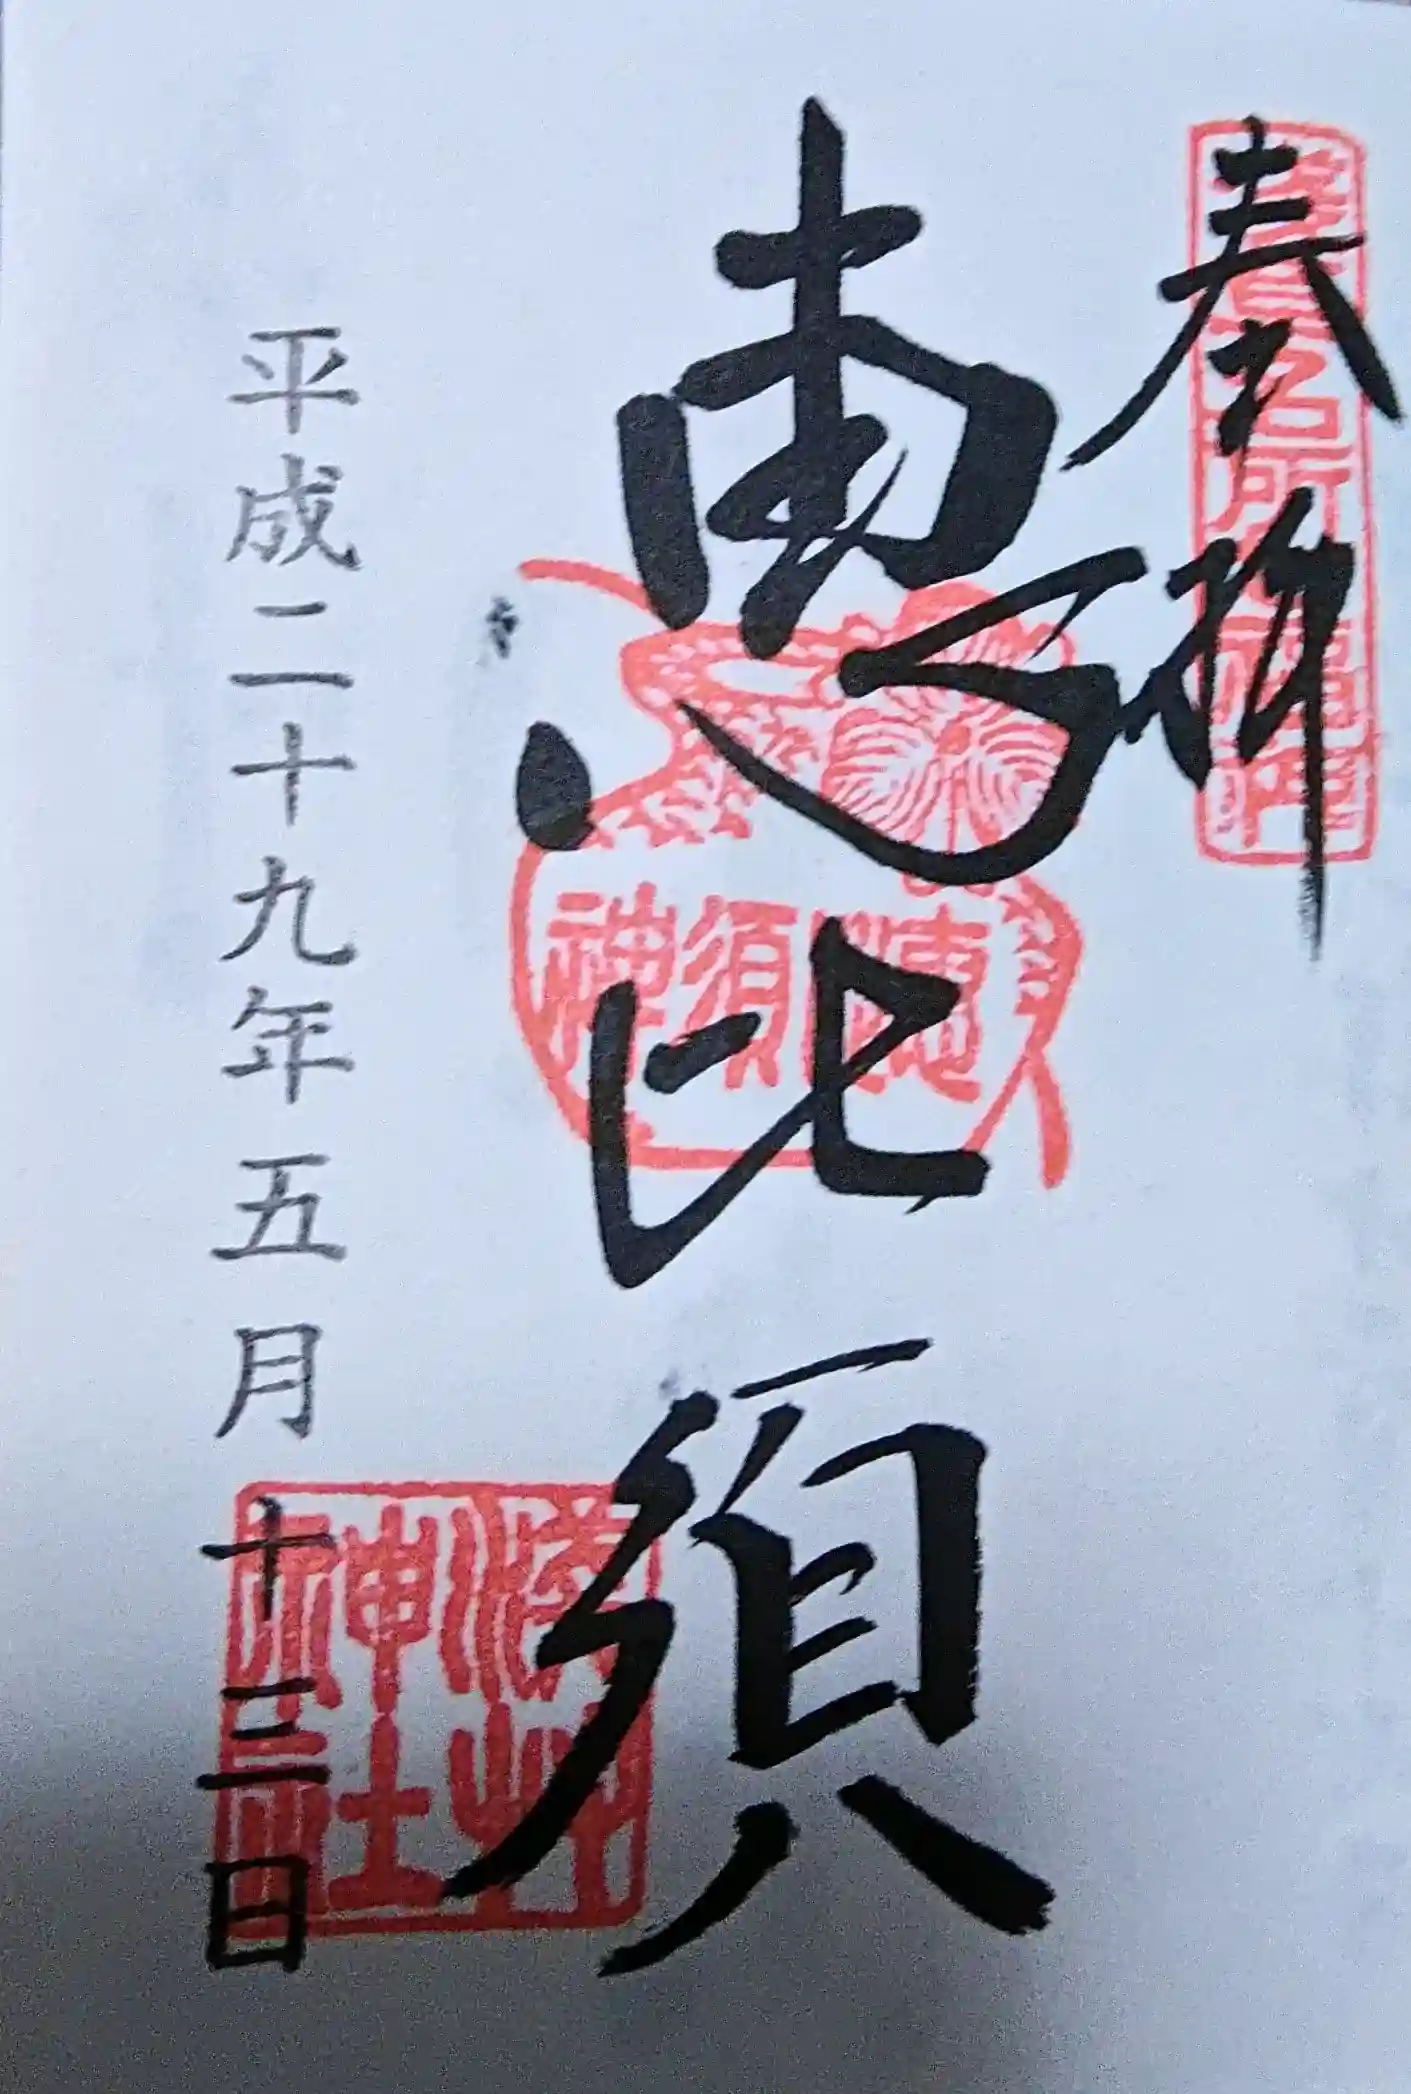 奉拝
恵比須
恵比須神
平成二十九年五月十三日
神社